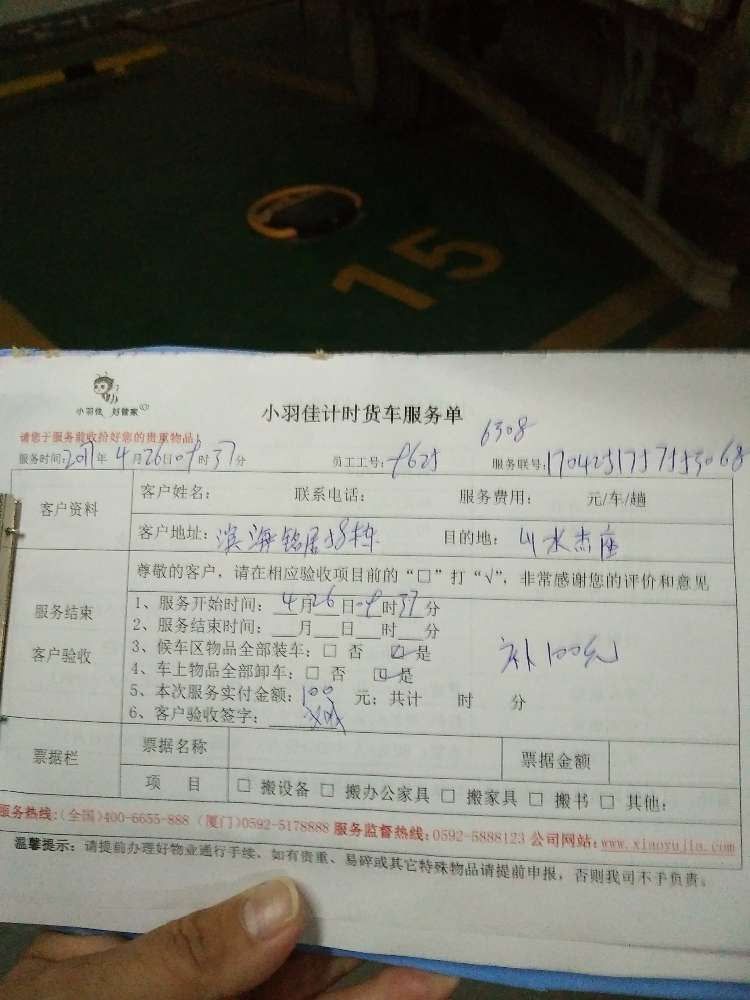 15
小羽佳 好管家
小羽佳计时货车服务单
6308
请您于服务前收拾好您的贵重物品！
服务时间:2017年4月26日09时37分 员工工号: 服务联号:
客户资料
客户姓名： 联系电话： 服务费用： 元/车/趟
客户地址：滨海铭居 栋 目的地：山水杰座
尊敬的客户，请在相应验收项目前的“□”打“√”，非常感谢您的评价和意见
服务结束
客户验收
1、服务开始时间：4月26日09时37分
2、服务结束时间：__月__日__时__分
3、候车区物品全部装车：□ 否 ☑是
4、车上物品全部卸车：□ 否 ☑是
补100元
5、本次服务实付金额：100 元；共计 时 分
6、客户验收签字：
票据栏
票据名称 票据金额
项 目 □ 搬设备 □ 搬办公家具 □ 搬家具 □ 搬书 □ 其他：
服务热线:(全国)400-6655-888 (厦门)0592-5178888 服务监督热线:0592-5888123 公司网站:www.xiaoyujia.com
温馨提示：请提前办理好物业通行手续、如有贵重、易碎或其它特殊物品请提前申报，否则我司不予负责。